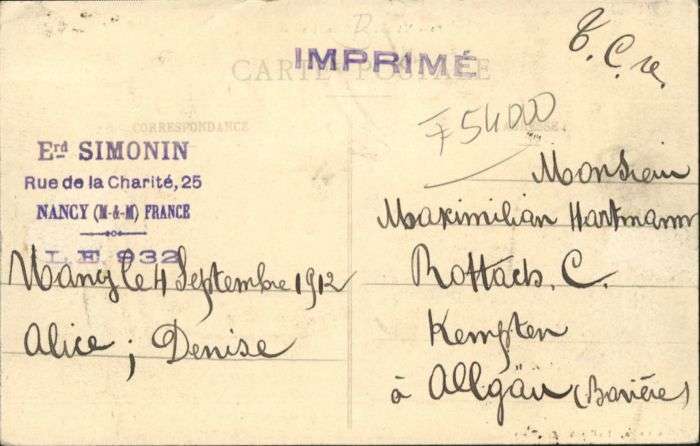 IMPRIMÉ
CARTE POSTALE
CORRESPONDANCE
Erd SIMONIN
Rue de la Charité, 25
NANCY (M-&-M) FRANCE
L.E. 932
Nancy le 4 Septembre 1912
Alice ; Denise
54000
Monsieur
Maximilian Hartmann
Rottach. C.
Kempten
à Allgäu (Bavière)